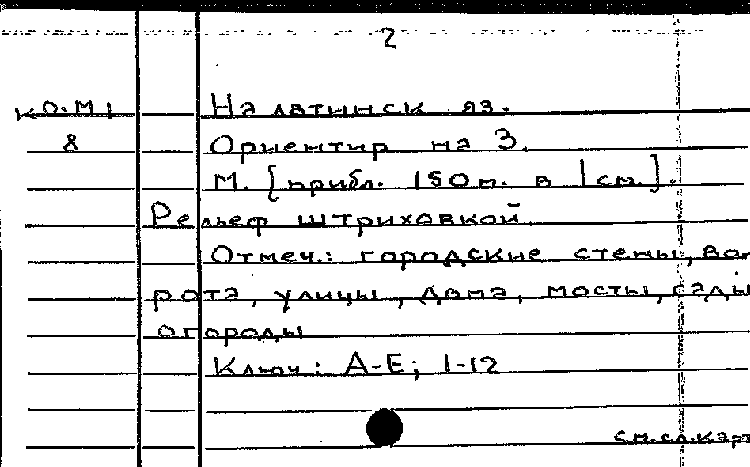 2
К0.М1 На латинск яз.
8 Ориентир на З.
М. [прибл. 150 м. в 1 см.].
Рельеф штриховкой
Отмеч.: городские стены, во-
рота, улицы, дома, мосты, сады
огороды
Ключ: А-Е; 1-12
см.сл.карт